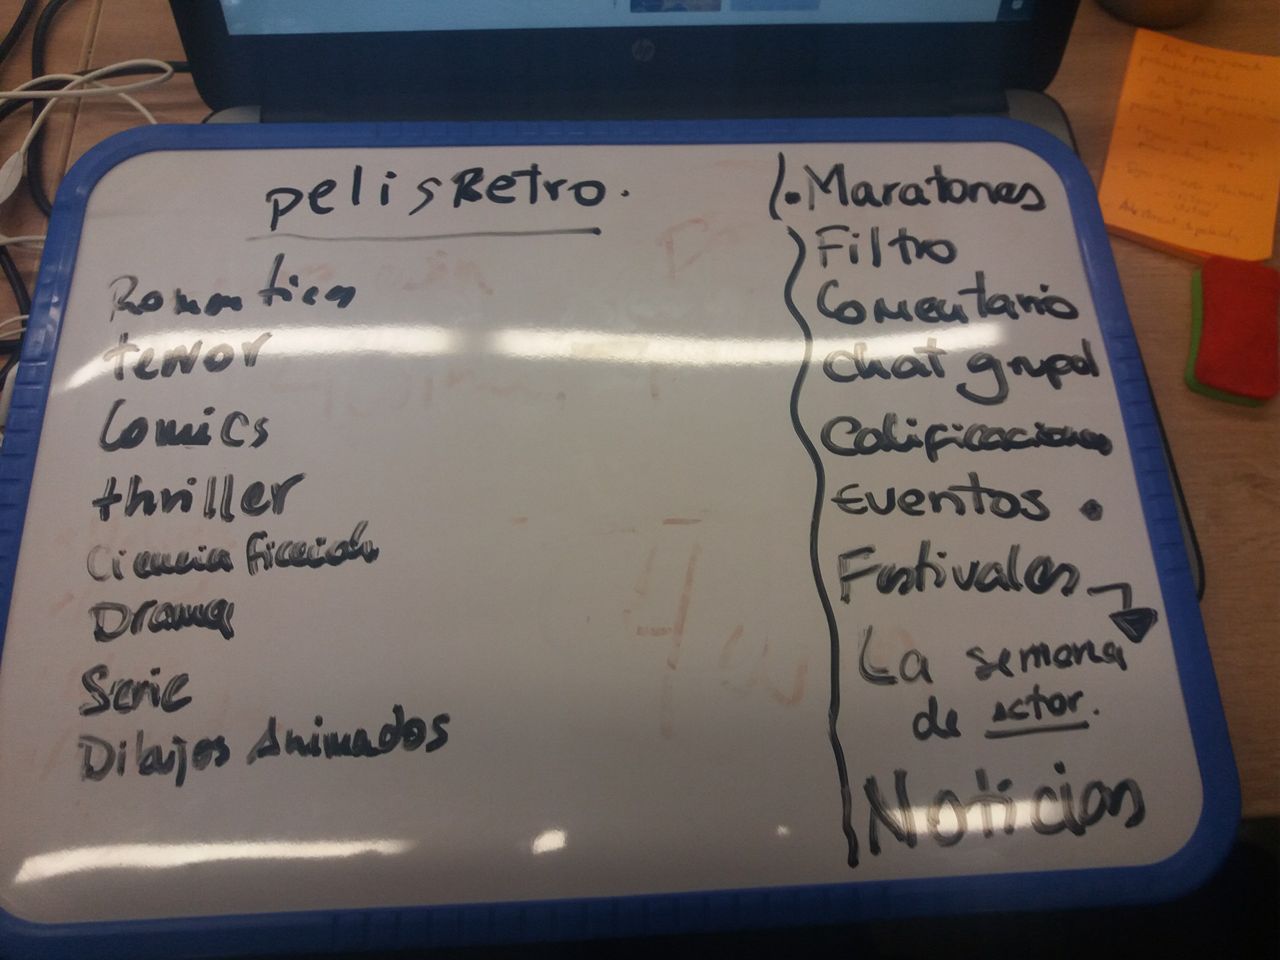 pelisRetro.
Romantica
terror
Comics
thriller
Ciencia ficcion
Drama
Serie
Dibujos Animados
. Maratones
Filtro
Comentario
chat grupal
Calificaciones
Eventos .
Festivales
La semana
de actor.
Noticias
hp